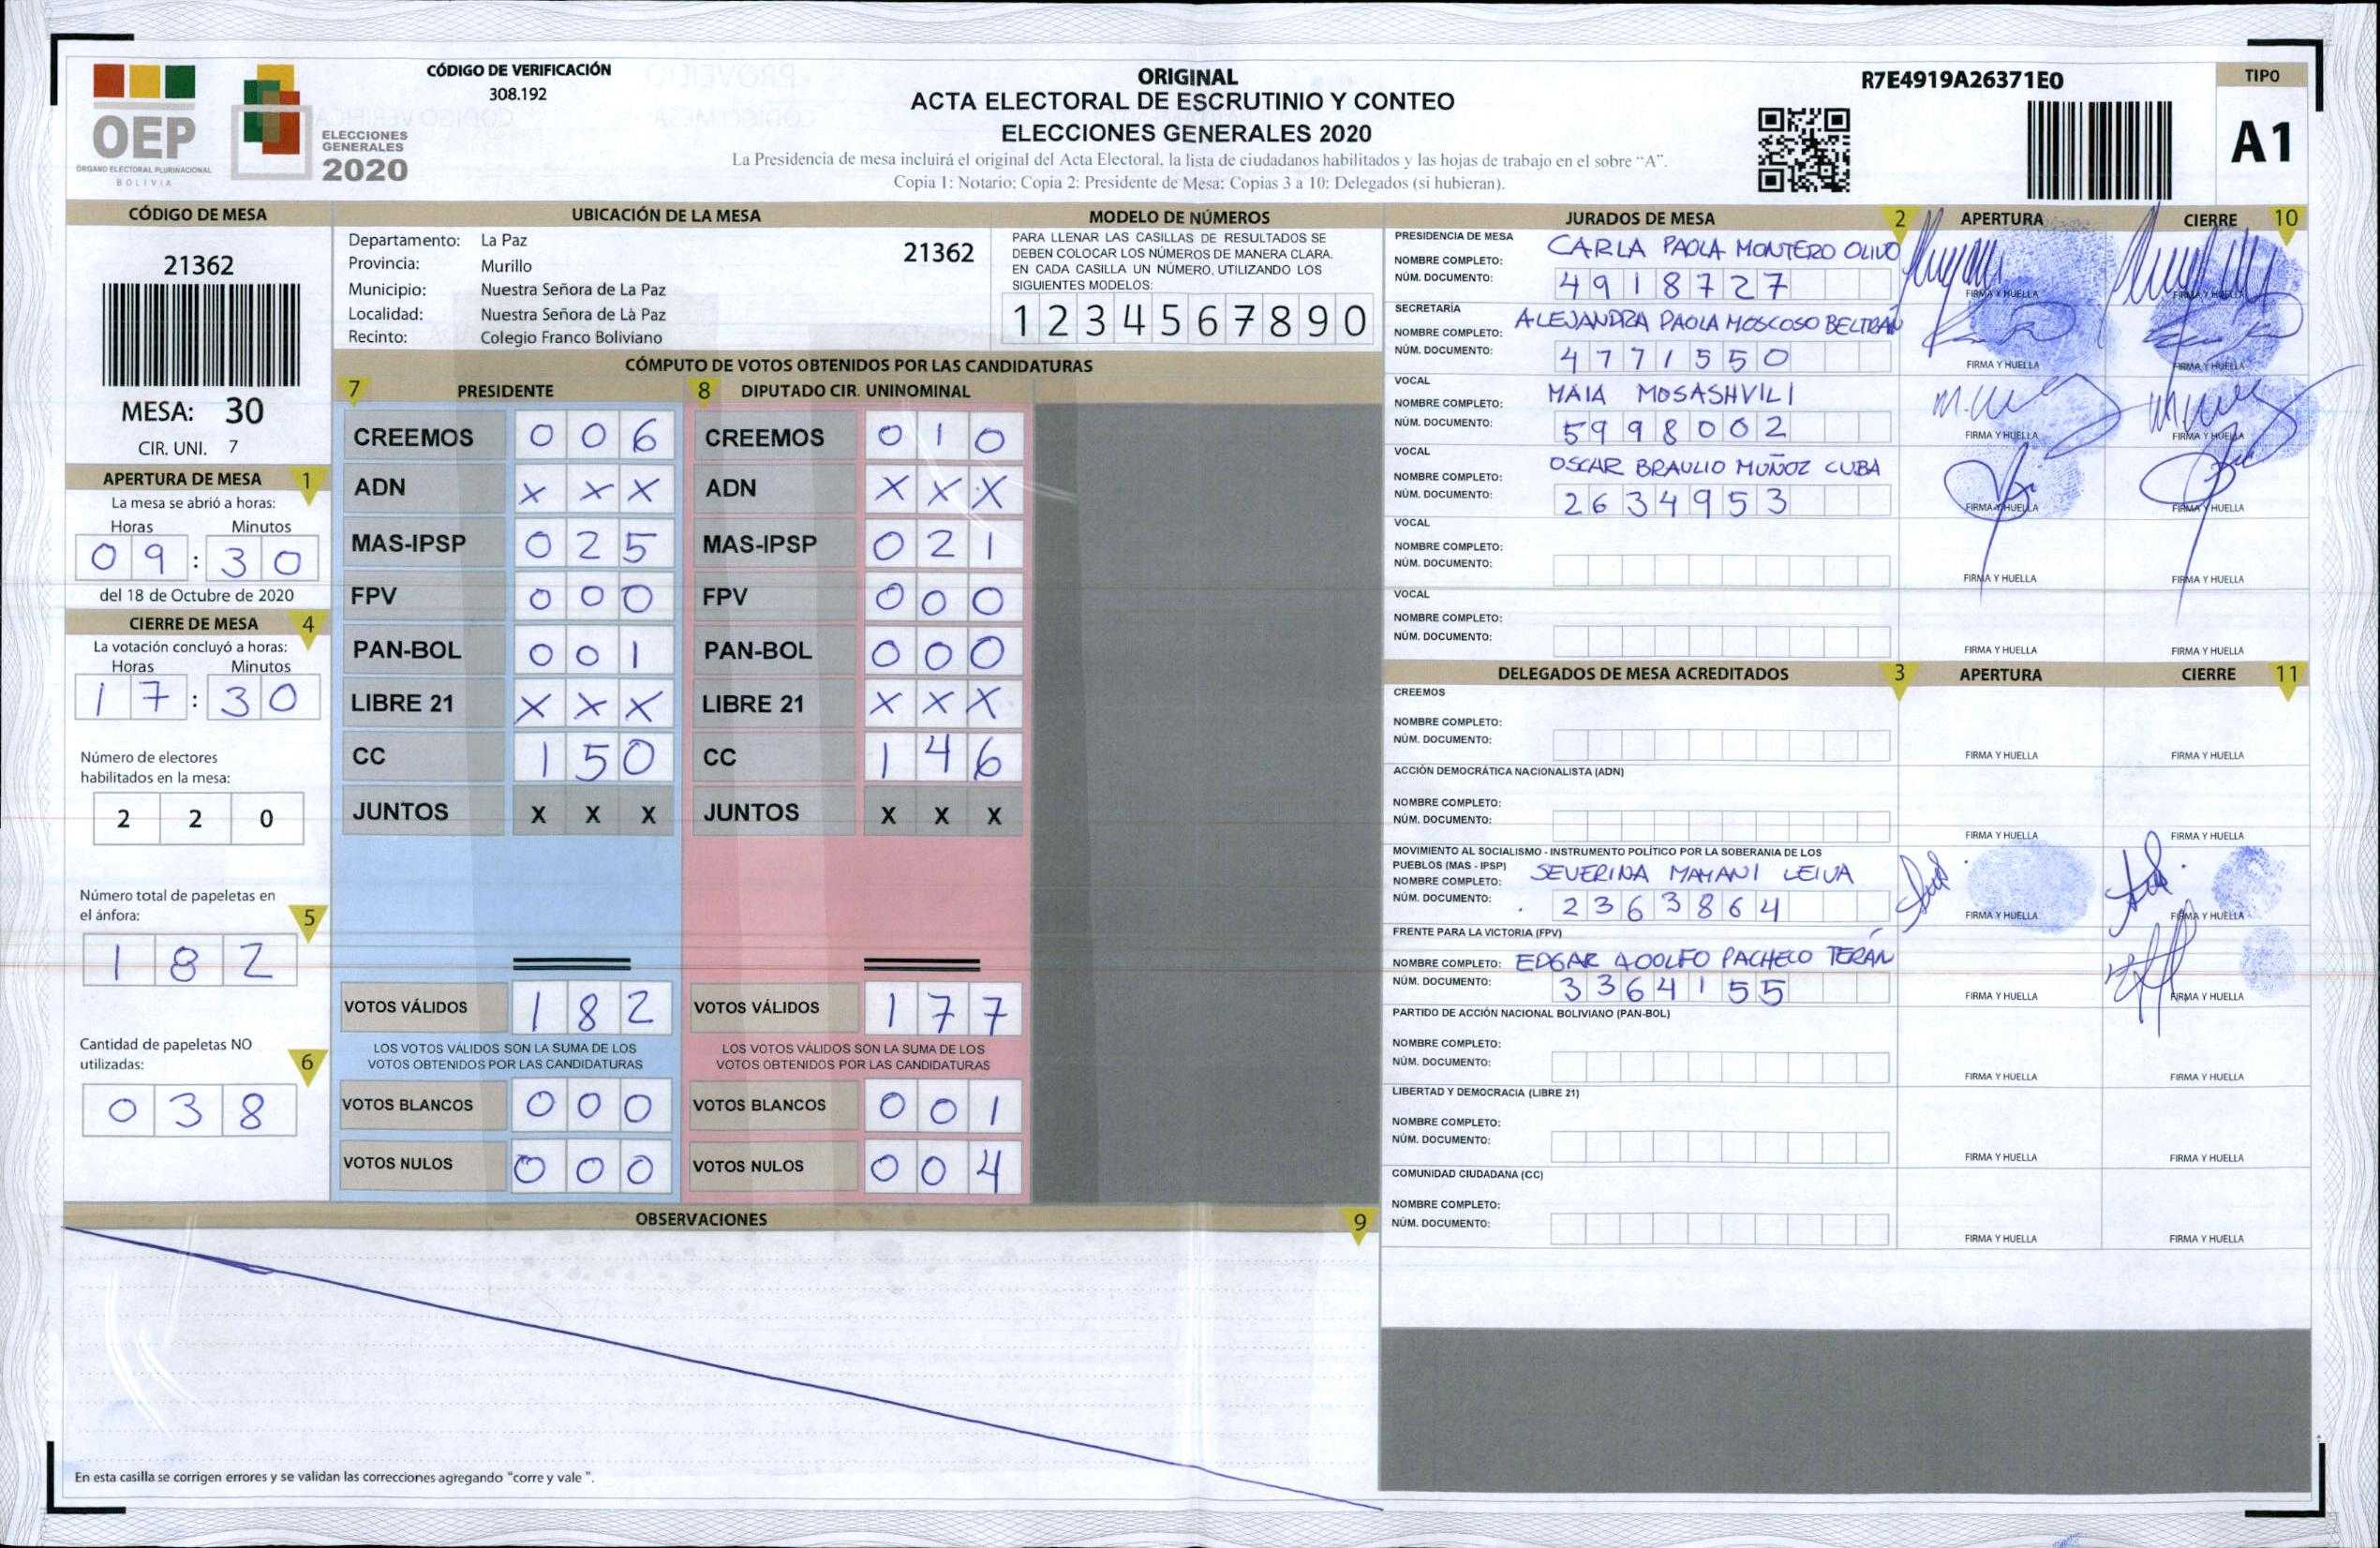 OEP
ÓRGANO ELECTORAL PLURINACIONAL
BOLIVIA
ELECCIONES
GENERALES
2020
CÓDIGO DE VERIFICACIÓN
308.192
ORIGINAL
ACTA ELECTORAL DE ESCRUTINIO Y CONTEO
ELECCIONES GENERALES 2020
La Presidencia de mesa incluirá el original del Acta Electoral, la lista de ciudadanos habilitados y las hojas de trabajo en el sobre "A".
Copia 1: Notario; Copia 2: Presidente de Mesa; Copias 3 a 10: Delegados (si hubieran).
R7E4919A26371E0
TIPO
A1
CÓDIGO DE MESA
21362
MESA: 30
CIR. UNI. 7
APERTURA DE MESA 1
La mesa se abrió a horas:
Horas Minutos
09:30
del 18 de Octubre de 2020
CIERRE DE MESA 4
La votación concluyó a horas:
Horas Minutos
17:30
Número de electores
habilitados en la mesa:
2 2 0
Número total de papeletas en
el ánfora: 5
1 8 2
Cantidad de papeletas NO
utilizadas: 6
0 3 8
UBICACIÓN DE LA MESA
Departamento: La Paz 21362
Provincia: Murillo
Municipio: Nuestra Señora de La Paz
Localidad: Nuestra Señora de Là Paz
Recinto: Colegio Franco Boliviano
MODELO DE NÚMEROS
PARA LLENAR LAS CASILLAS DE RESULTADOS SE
DEBEN COLOCAR LOS NÚMEROS DE MANERA CLARA.
EN CADA CASILLA UN NÚMERO, UTILIZANDO LOS
SIGUIENTES MODELOS:
1 2 3 4 5 6 7 8 9 0
CÓMPUTO DE VOTOS OBTENIDOS POR LAS CANDIDATURAS
7 PRESIDENTE 8 DIPUTADO CIR. UNINOMINAL
CREEMOS 0 0 6 CREEMOS 0 1 0
ADN X X X ADN X X X
MAS-IPSP 0 2 5 MAS-IPSP 0 2 1
FPV 0 0 0 FPV 0 0 0
PAN-BOL 0 0 1 PAN-BOL 0 0 0
LIBRE 21 X X X LIBRE 21 X X X
CC 1 5 0 CC 1 4 6
JUNTOS X X X JUNTOS X X X
VOTOS VÁLIDOS 1 8 2 VOTOS VÁLIDOS 1 7 7
LOS VOTOS VÁLIDOS SON LA SUMA DE LOS LOS VOTOS VÁLIDOS SON LA SUMA DE LOS
VOTOS OBTENIDOS POR LAS CANDIDATURAS VOTOS OBTENIDOS POR LAS CANDIDATURAS
VOTOS BLANCOS 0 0 0 VOTOS BLANCOS 0 0 1
VOTOS NULOS 0 0 0 VOTOS NULOS 0 0 4
OBSERVACIONES 9
En esta casilla se corrigen errores y se validan las correcciones agregando "corre y vale ".
JURADOS DE MESA 2 APERTURA CIERRE 10
PRESIDENCIA DE MESA
NOMBRE COMPLETO: CARLA PAOLA MONTERO OLIVO
NÚM. DOCUMENTO: 4918727
FIRMA Y HUELLA FIRMA Y HUELLA
SECRETARÍA
NOMBRE COMPLETO: ALEJANDRA PAOLA MOSCOSO BELTRÁN
NÚM. DOCUMENTO: 4771550
FIRMA Y HUELLA FIRMA Y HUELLA
VOCAL
NOMBRE COMPLETO: MAIA MOSASHVILI
NÚM. DOCUMENTO: 5998002
FIRMA Y HUELLA FIRMA Y HUELLA
VOCAL
NOMBRE COMPLETO: OSCAR BRAULIO MUÑOZ CUBA
NÚM. DOCUMENTO: 2634953
FIRMA Y HUELLA FIRMA Y HUELLA
VOCAL
NOMBRE COMPLETO:
NÚM. DOCUMENTO:
FIRMA Y HUELLA FIRMA Y HUELLA
VOCAL
NOMBRE COMPLETO:
NÚM. DOCUMENTO:
FIRMA Y HUELLA FIRMA Y HUELLA
DELEGADOS DE MESA ACREDITADOS 3 APERTURA CIERRE 11
CREEMOS
NOMBRE COMPLETO:
NÚM. DOCUMENTO:
FIRMA Y HUELLA FIRMA Y HUELLA
ACCIÓN DEMOCRÁTICA NACIONALISTA (ADN)
NOMBRE COMPLETO:
NÚM. DOCUMENTO:
FIRMA Y HUELLA FIRMA Y HUELLA
MOVIMIENTO AL SOCIALISMO - INSTRUMENTO POLÍTICO POR LA SOBERANIA DE LOS
PUEBLOS (MAS - IPSP)
NOMBRE COMPLETO: SEVERINA MAMANI LEIVA
NÚM. DOCUMENTO: 2363864
FIRMA Y HUELLA FIRMA Y HUELLA
FRENTE PARA LA VICTORIA (FPV)
NOMBRE COMPLETO: EDGAR ADOLFO PACHECO TERÁN
NÚM. DOCUMENTO: 3364155
FIRMA Y HUELLA FIRMA Y HUELLA
PARTIDO DE ACCIÓN NACIONAL BOLIVIANO (PAN-BOL)
NOMBRE COMPLETO:
NÚM. DOCUMENTO:
FIRMA Y HUELLA FIRMA Y HUELLA
LIBERTAD Y DEMOCRACIA (LIBRE 21)
NOMBRE COMPLETO:
NÚM. DOCUMENTO:
FIRMA Y HUELLA FIRMA Y HUELLA
COMUNIDAD CIUDADANA (CC)
NOMBRE COMPLETO:
NÚM. DOCUMENTO:
FIRMA Y HUELLA FIRMA Y HUELLA